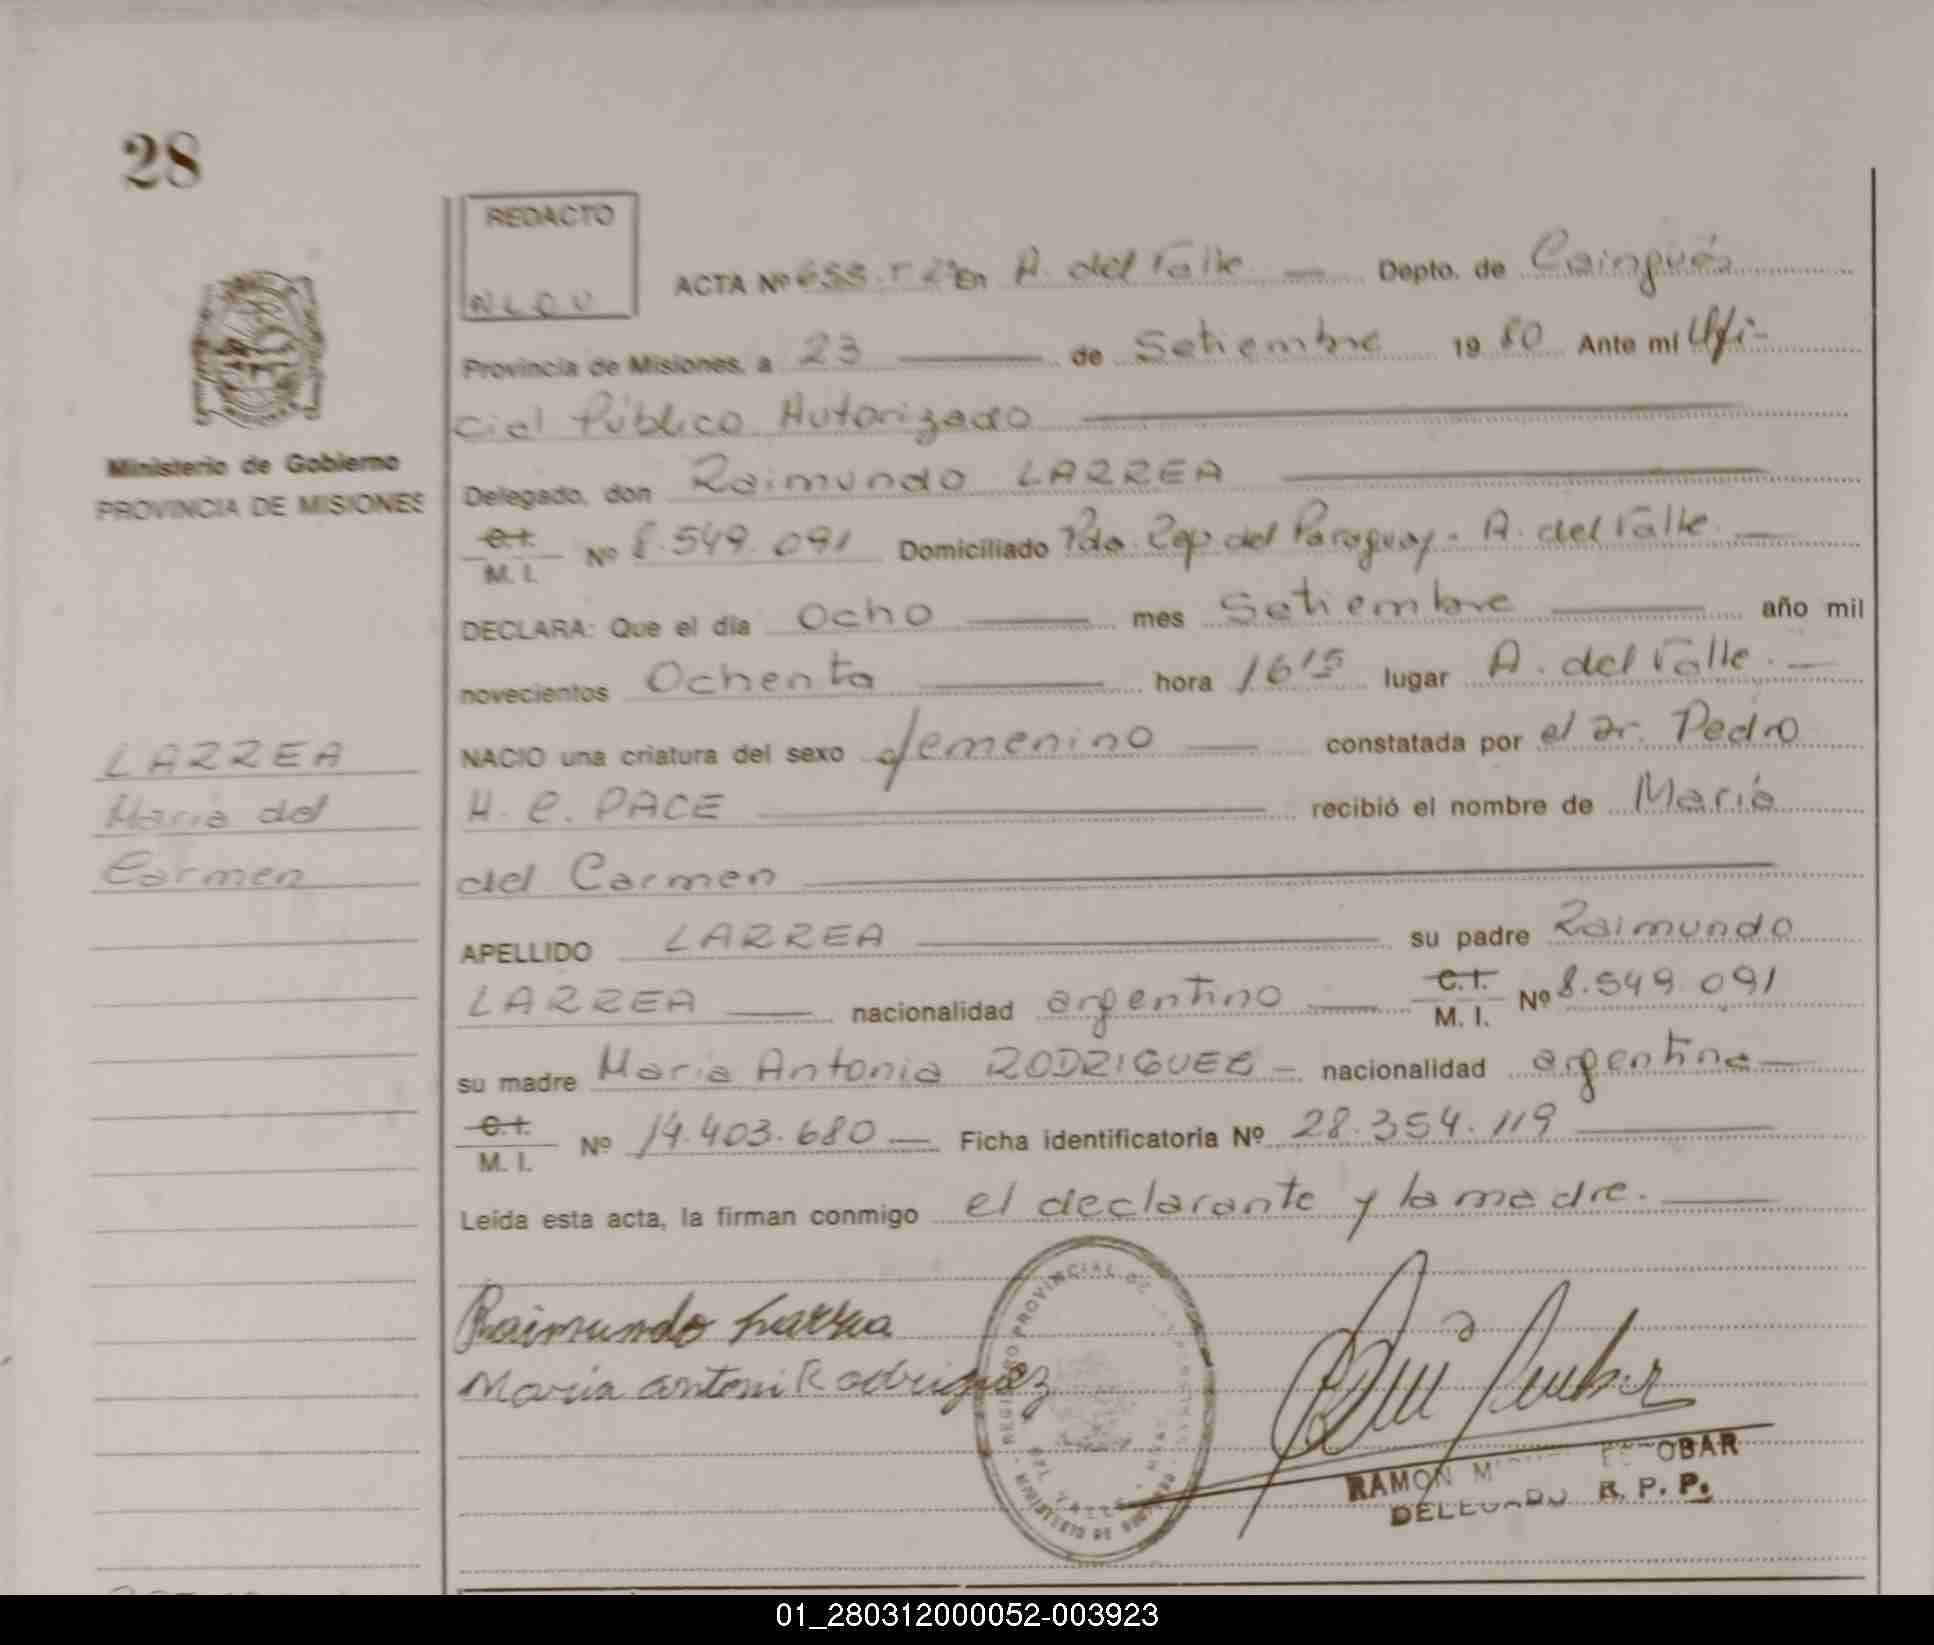 28
REDACTO
ACTA Nº 658. T 2º En A. del Valle. Depto. de Cainguás
Provincia de Misiones, a 23 de Setiembre 1980 Ante mí Ofi-
cial Público Autorizado
Ministerio de Gobierno
PROVINCIA DE MISIONES
Delegado, don Raimundo LARREA
C.I.
M. I. Nº 8.549.091 Domiciliado Pdo. Rep. del Paraguay - A. del Valle.
DECLARA: Que el día Ocho mes Setiembre año mil
novecientos Ochenta hora 16 15 lugar A. del Valle.
NACIO una criatura del sexo femenino constatada por el Dr. Pedro
H. C. PACE recibió el nombre de María
del Carmen
LARREA
María del
Carmen
APELLIDO LARREA su padre Raimundo
LARREA nacionalidad argentino C.I. M. I. Nº 8.549.091
su madre María Antonia RODRIGUEZ - nacionalidad argentina
C.I.
M. I. Nº 14.403.680 Ficha identificatoria Nº 28.354.119
Leída esta acta, la firman conmigo el declarante y la madre.
Raimundo Larrea
Maria antoni Rodriguez
REGISTRO PROVINCIAL DE LAS PERSONAS
MINISTERIO DE GOBIERNO
DEL VALLE
RAMON OBAR
DELEGADO R. P. P.
01_280312000052-003923